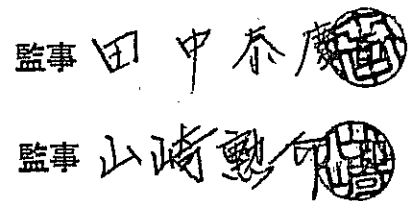 監事 田中泰廣
監事 山崎勲